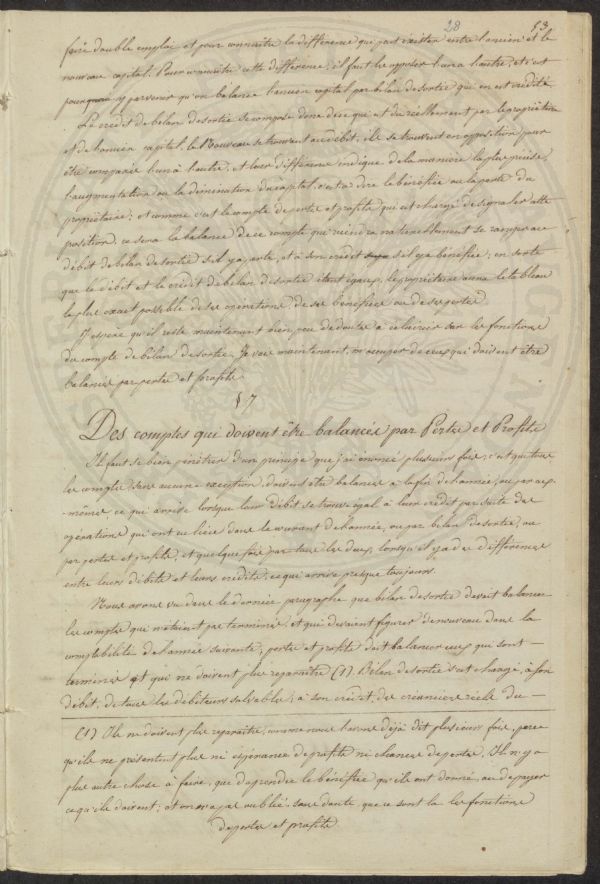 28 53.
faire double emploi et pour connaître la différence qui peut exister entre l'ancien et le
nouveau capital. Pour connaître cette différence, il faut les opposer l'un à l'autre, et c'est
pourquoi y parvenir qu'on balance l'ancien capital par bilan de sortie qui en est crédité.
Le crédit de bilan de sortie se compose donc de ce qui est dû réellement par le propriétaire
et de l'ancien capital, le Nouveau se trouvant au débit, ils se trouvent en opposition pour
être comparés l'un à l'autre, et leur différence indique de la manière la plus précise,
l'augmentation ou la diminution du capital, c'est à dire le bénéfice ou la perte du
propriétaire; et comme c'est le compte de perte et profits qui est chargé de signaler cette
position, ce sera la balance de ce compte qui viendra naturellement se ranger au
débit de bilan de sortie s'il y a perte, et à son crédit s'il y a bénéfice; en sorte
que le débit et le crédit de bilan de sortie étant égaux, le propriétaire aura le tableau
le plus exact possible de ses opérations, de ses bénéfices ou de ses pertes.
J'espère qu'il reste maintenant bien peu de doutes à éclaircir sur les fonctions
du compte de bilan de sortie. Je vais maintenant m'occuper de ceux qui doivent être
balancés par pertes et profits.
§ 7
Des comptes qui doivent être balancés par Pertes et Profits
Il faut se bien pénétrer d'un principe que j'ai énoncé plusieurs fois; c'est que tous
les comptes sans aucune exception, doivent être balancés à la fin de l'année, ou par eux-
-mêmes ce qui arrive lorsque leur débit se trouve égal à leur crédit par suite des
opérations qui ont eu lieu dans le courant de l'année, ou par bilan de sortie, ou
par pertes et profits, et quelque fois par tous les deux, lorsqu'il y a des différences
entre leurs débits et leurs crédits, ce qui arrive presque toujours.
Nous avons vu dans le dernier paragraphe que bilan de sortie devait balancer
les comptes qui n'étaient pas terminés, et qui devaient figurer de nouveau dans la
comptabilité de l'année suivante; pertes et profits doit balancer ceux qui sont
terminés et qui ne doivent plus reparaître (1). Bilan de sortie s'est chargé, à son
débit, de tous les débiteurs solvables, à son crédit, des créanciers réels du
(1) Ils ne doivent plus reparaître, comme nous l'avons déjà dit plusieurs fois, parce
qu'ils ne présentent plus ni espérance de profits ni chances de pertes. Il n'y a
plus autre chose à faire, que d'apprendre le bénéfice qu'ils ont donné, ou de payer
ce qu'ils doivent; et on n'a pas oublié, sans doute, que ce sont là les fonctions
de pertes et profits